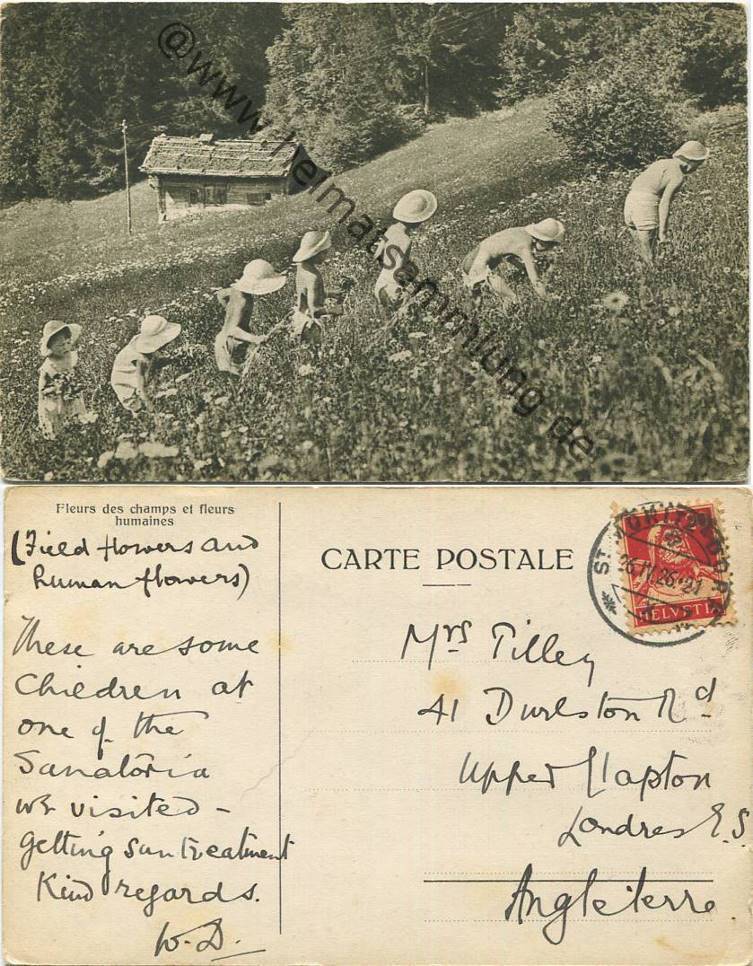 @www.heimatsammlung.de
Fleurs des champs et fleurs
humaines
(Field flowers and
human flowers)
These are some
Children at
one of the
Sanatoria
we visited –
getting sun treatment
Kind regards.
W.D.
CARTE POSTALE
ST. MORITZ DORF
HELVETIA
Mrs Tilley
41 Durlston Rd
Upper Clapton
Londres E.5.
Angleterre